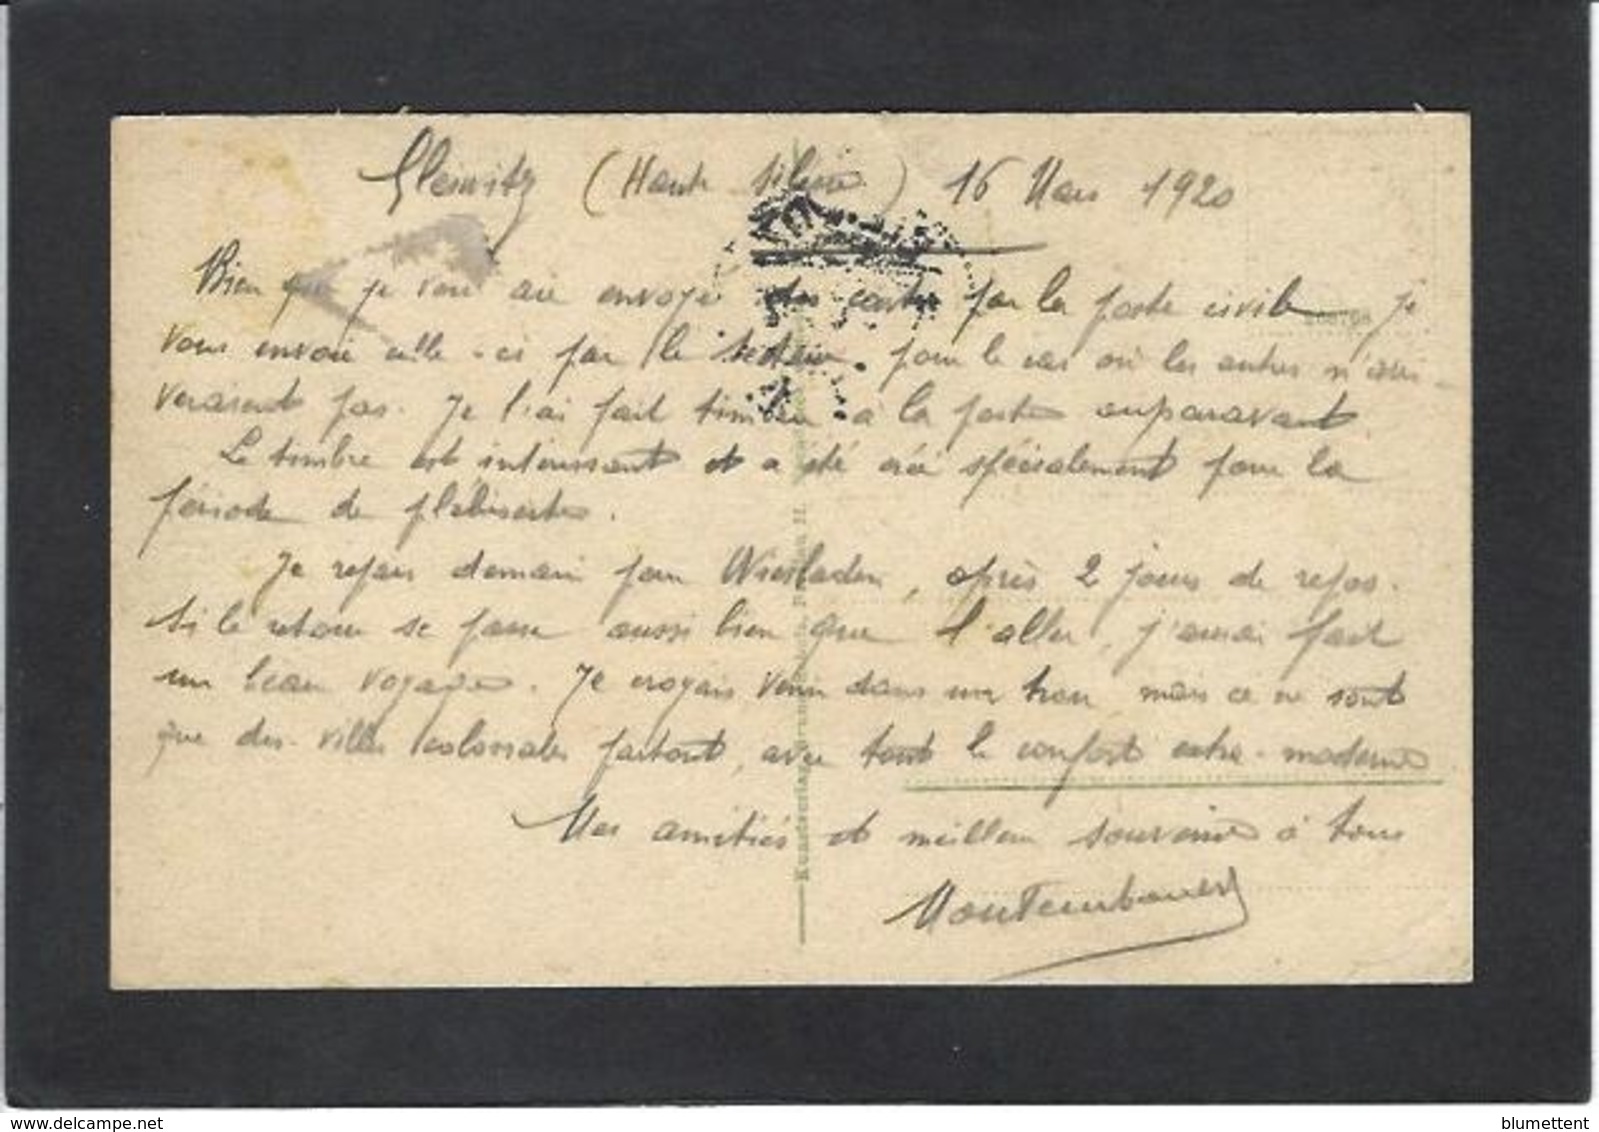 Gleiwitz (Haute Silésie) 16 Mars 1920
Bien que je vous aie envoyé des cartes par la poste civile je
vous envoie celle-ci par le secteur pour le cas où les autres n'arri-
veraient pas. Je l'ai fait timbrer à la poste auparavant.
Le timbre est intéressant et a été créé spécialement pour la
période de plébiscite.
Je repars demain pour Wiesbaden, après 2 jours de repos.
Si le retour se passe aussi bien que l'aller, j'aurai fait
un beau voyage. Je croyais venir dans un trou mais ce ne sont
que des villes colossales partout, avec tout le confort extra-moderne
Mes amitiés et meilleurs souvenirs à tous
blumettent